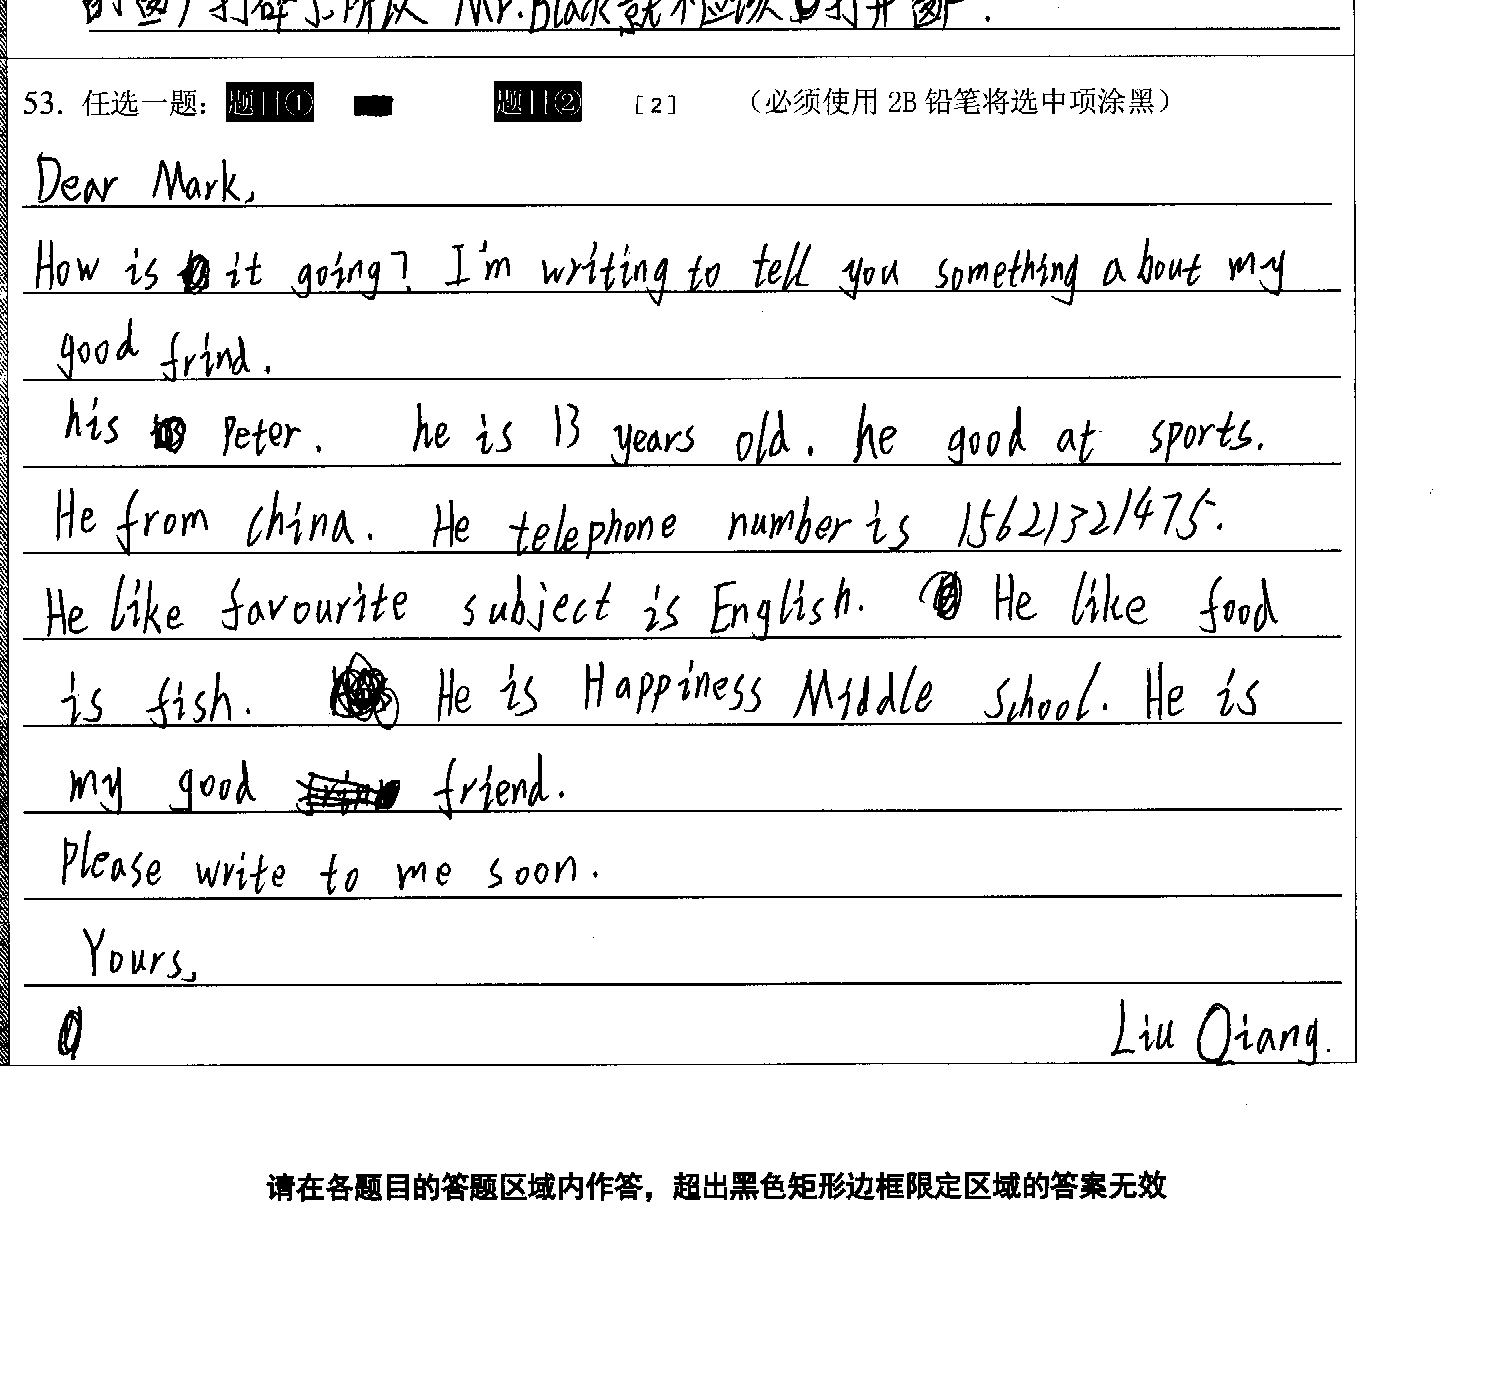 打碎了所以 Mr.Black就不应该打开窗户.
53. 任选一题: 题目① 题目② [2] (必须使用 2B 铅笔将选中项涂黑)
Dear Mark,
How is it going? I'm writing to tell you something about my
good frind.
his Peter. he is 13 years old. he good at sports.
He from China. He telephone number is 15621321475.
He like favourite subject is English. He like food
is fish. He is Happiness Middle School. He is
my good friend.
Please write to me soon.
Yours,
Liu Qiang.
请在各题目的答题区域内作答，超出黑色矩形边框限定区域的答案无效